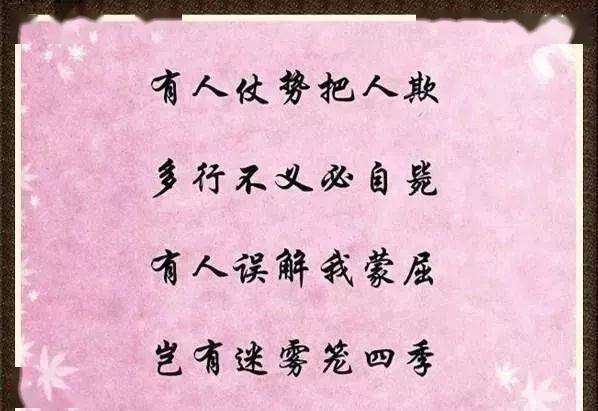 有人仗势把人欺
多行不义必自毙
有人误解我蒙屈
岂有迷雾笼四季